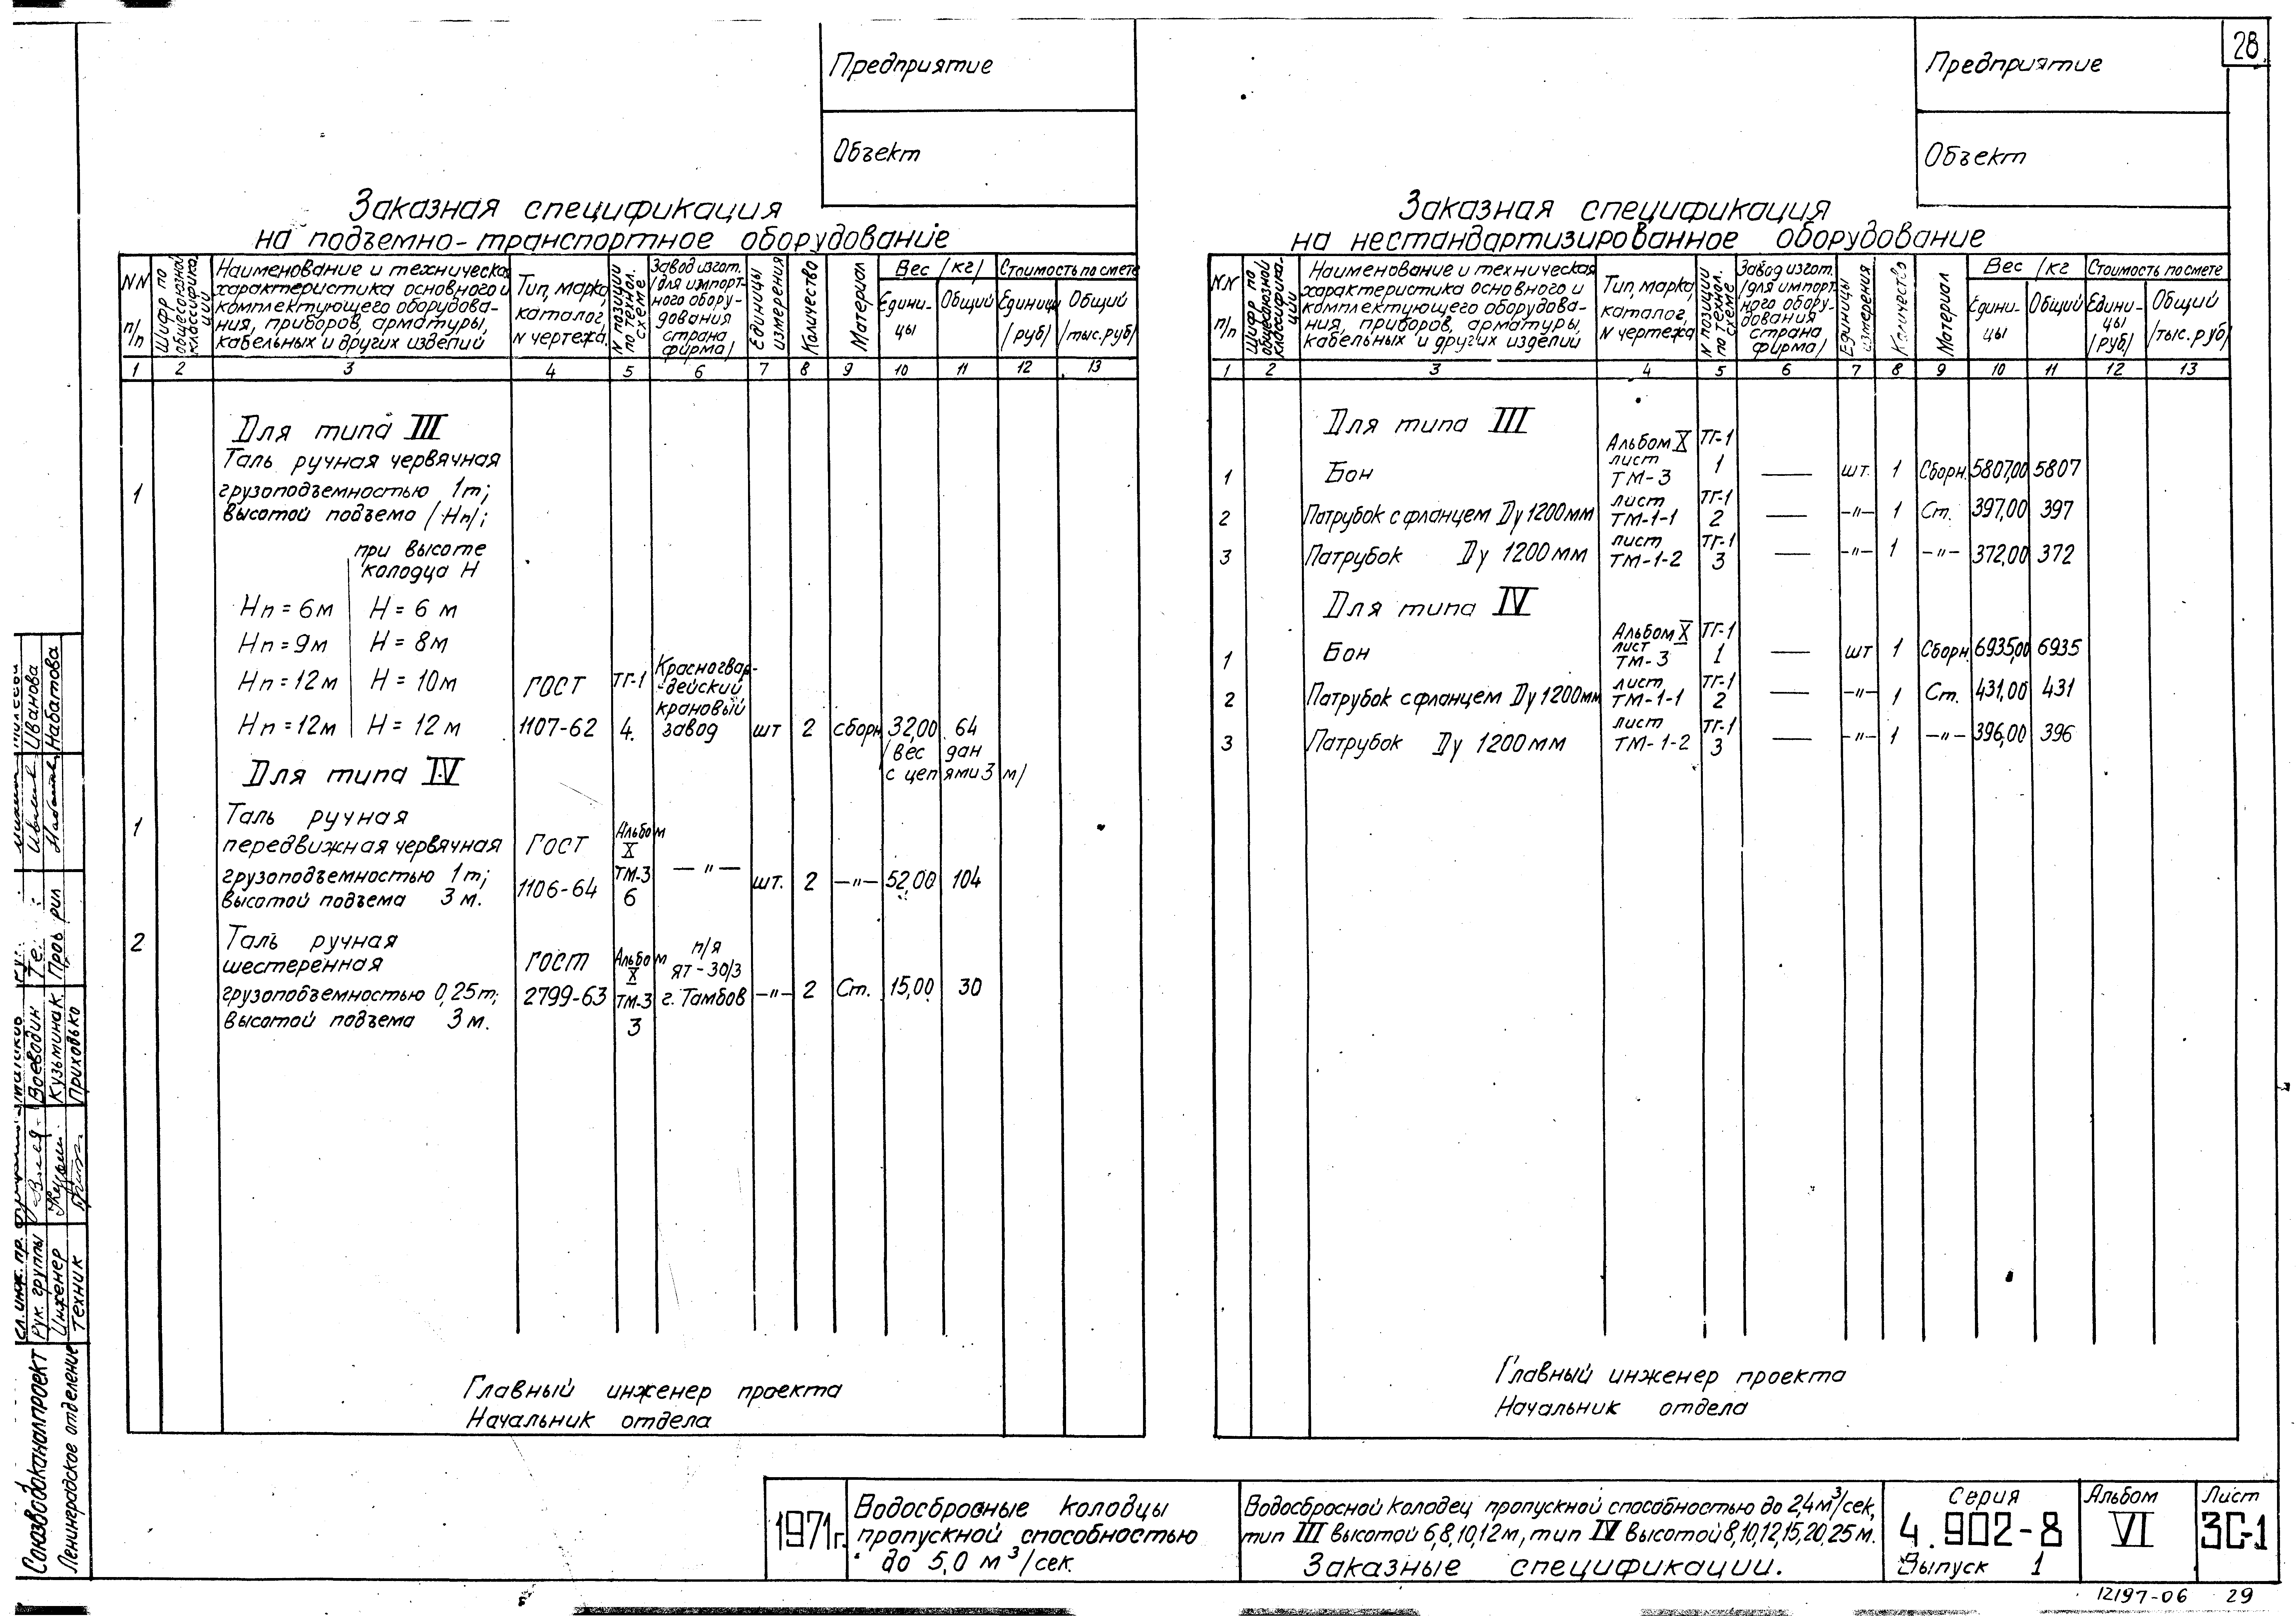 28
Предприятие
Объект
Заказная спецификация
на подъемно-транспортное оборудование
NN п/п
Шифр по общесоюзной классификации
Наименование и техническая
характеристика основного и
комплектующего оборудова-
ния, приборов, арматуры,
кабельных и других изделий
Тип, марка,
каталог,
N чертежа
N позиции по технол. схеме
Завод изгот.
/для импорт-
ного обору-
дования
страна
фирма/
Единицы измерения
Количество
Материал
Вес /кг/
Едини-
цы
Общий
Стоимость по смете
Единицы
/руб/
Общий
/тыс.руб/
1 2 3 4 5 6 7 8 9 10 11 12 13
Для типа III
Таль ручная червячная
1 грузоподъемностью 1т;
высотой подъема /Нп/;
при высоте
колодца Н
Нп = 6м Н = 6 м
Нп = 9м Н = 8м
Нп = 12м Н = 10м
Нп = 12м Н = 12 м
ГОСТ
1107-62
ТГ-1
4.
Красногвар-
-дейский
крановый
завод
шт 2 сборн 32,00 64
/вес дан
с цепями 3 м/
Для типа IV
1 Таль ручная
передвижная червячная
грузоподъемностью 1т;
высотой подъема 3 м.
ГОСТ
1106-64
Альбом
X
ТМ-3
6
—"—
шт. 2 —"— 52,00 104
2 Таль ручная
шестеренная
грузоподъемностью 0,25т;
высотой подъема 3 м.
ГОСТ
2799-63
Альбом
X
ТМ-3
3
п/я
ЯТ-30/3
г. Тамбов
—"— 2 Ст. 15,00 30
Главный инженер проекта
Начальник отдела
Предприятие
Объект
Заказная спецификация
на нестандартизированное оборудование
NN п/п
Шифр по общесоюзной классификации
Наименование и техническая
характеристика основного и
комплектующего оборудова-
ния, приборов, арматуры,
кабельных и других изделий
Тип, марка,
каталог,
N чертежа
N позиции по технол. схеме
Завод изгот.
/для импорт.
ного обору-
дования
страна
фирма/
Единицы измерения
Количество
Материал
Вес /кг
Едини-
цы
Общий
Стоимость по смете
Едини-
цы
/руб/
Общий
/тыс.руб/
1 2 3 4 5 6 7 8 9 10 11 12 13
Для типа III
Альбом X ТГ-1
лист
1 Бон ТМ-3 1 — шт. 1 Сборн. 5807,00 5807
лист ТГ-1
2 Патрубок с фланцем Dу 1200мм ТМ-1-1 2 — —"— 1 Ст. 397,00 397
лист ТГ-1
3 Патрубок Dу 1200мм ТМ-1-2 3 — —"— 1 —"— 372,00 372
Для типа IV
Альбом X ТГ-1
лист
1 Бон ТМ-3 1 — шт 1 Сборн. 6935,00 6935
лист ТГ-1
2 Патрубок с фланцем Dу 1200мм ТМ-1-1 2 — —"— 1 Ст. 431,00 431
лист ТГ-1
3 Патрубок Dу 1200мм ТМ-1-2 3 — —"— 1 —"— 396,00 396
Главный инженер проекта
Начальник отдела
Союзводоканалпроект
Ленинградское отделение
Гл. инж. пр.
Рук. группы Воеводин
Инженер Кузьминак
Техник Приховько
Иванова
Набатова
1971г.
Водосбросные колодцы
пропускной способностью
до 5,0 м³/сек.
Водосбросной колодец пропускной способностью до 2,4м³/сек,
тип III высотой 6,8,10,12м, тип IV высотой 8,10,12,15,20,25м.
Заказные спецификации.
Серия
4.902-8
Выпуск 1
Альбом
VI
Лист
ЗС-1
12197-06 29